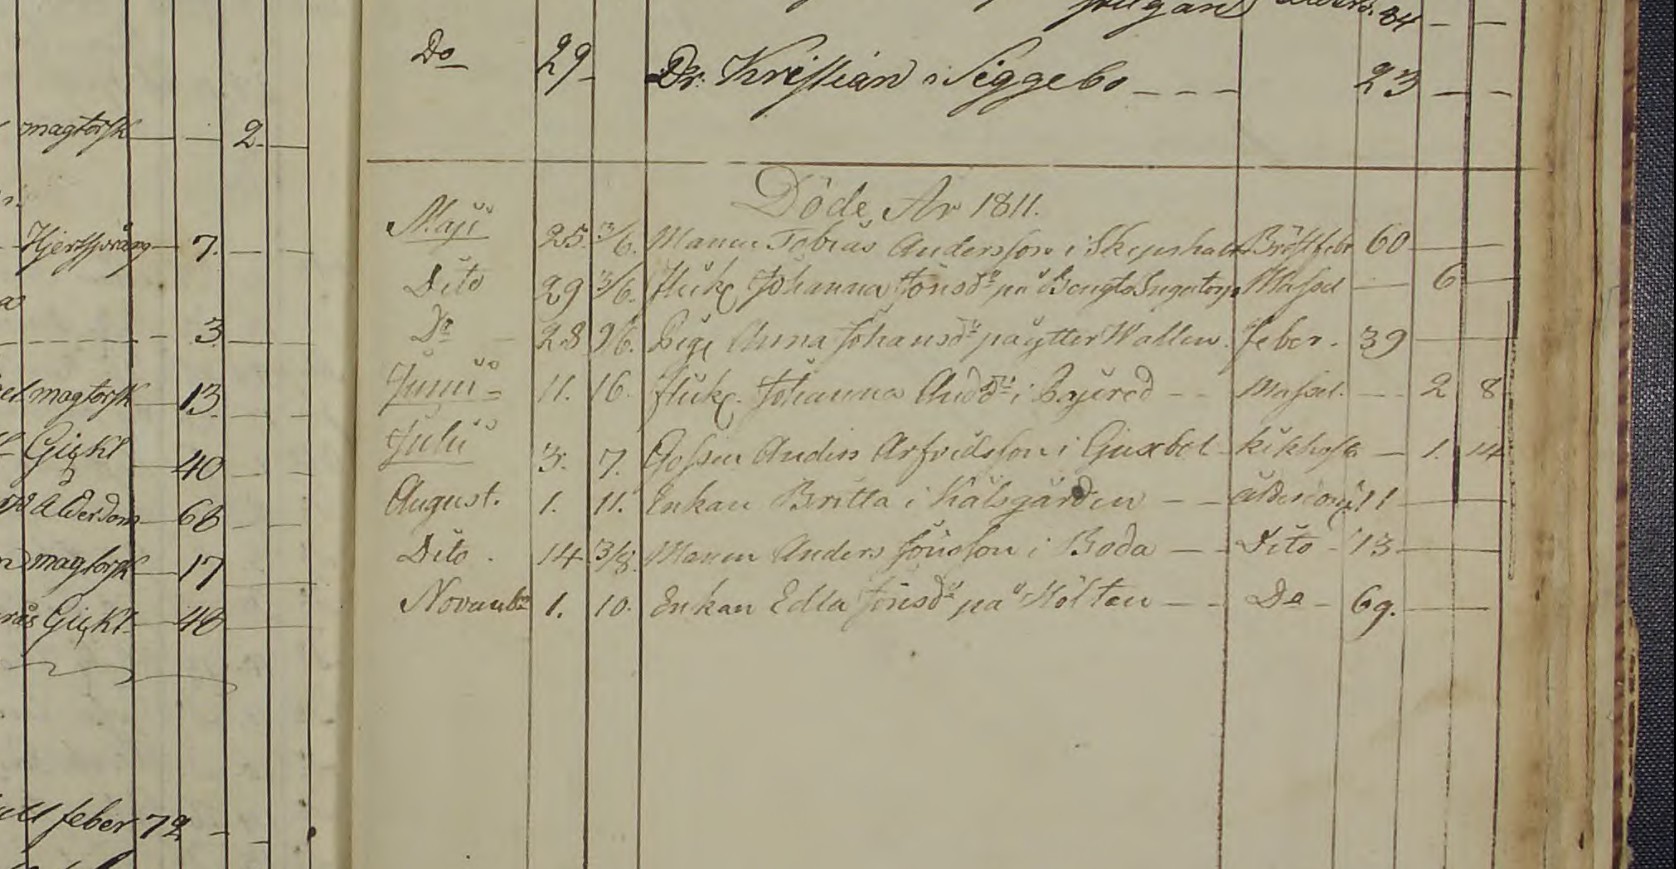 magtorsk 2
Hjertspräng 7
3
magtorsk 13
Gickt 40
ålderdom 68
magtorsk 17
Gickt 48
feber 72
84
Do 29 Kristian i Siggebo 23
Döde År 1811.
Maji 25. 13/6. Mannen Tobias Andersson i Bröstfeber 60
Dito 29 3/6. flick Johanna Jonsdr på Bengts Massel 6
Do 28 9/6. Pig Anna Johansdr på ytter Wallen. feber. 39
Junii 11. 16. flick. Johanna Andsdr i Massel. 2 8
Julii 3. 7. Gossen Anders Arfvidsson i kikhosta 1. 14
August. 1. 11. Enkan Britta i Kålsgården ålderdom
Dito. 14 3/8. Mannen Anders Jönsson i Boda Dito
Novembr 1. 10. Enkan Edla Jönsdr på Holten Do 69.